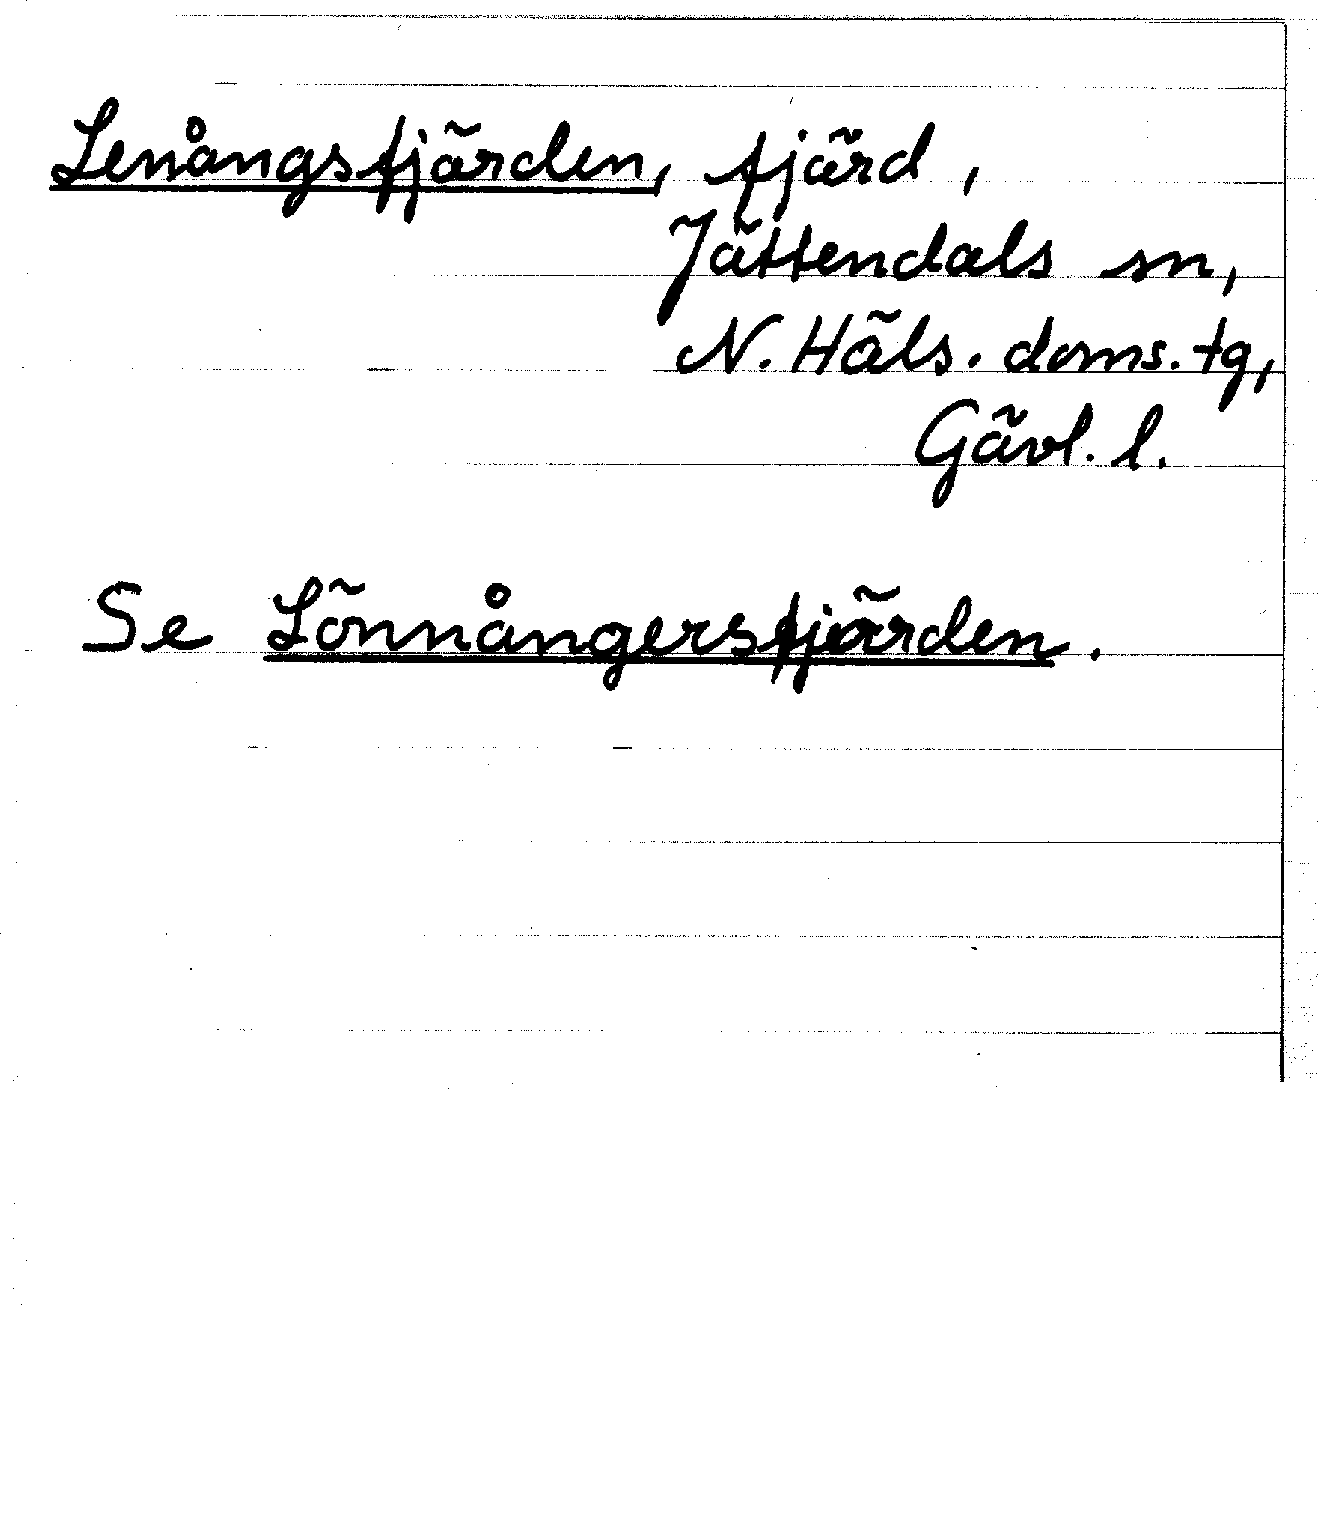 Lenångsfjärden, fjärd,
Jättendals sn,
N. Häls. doms. tg,
Gävl. l.
Se Lönnångersfjärden.